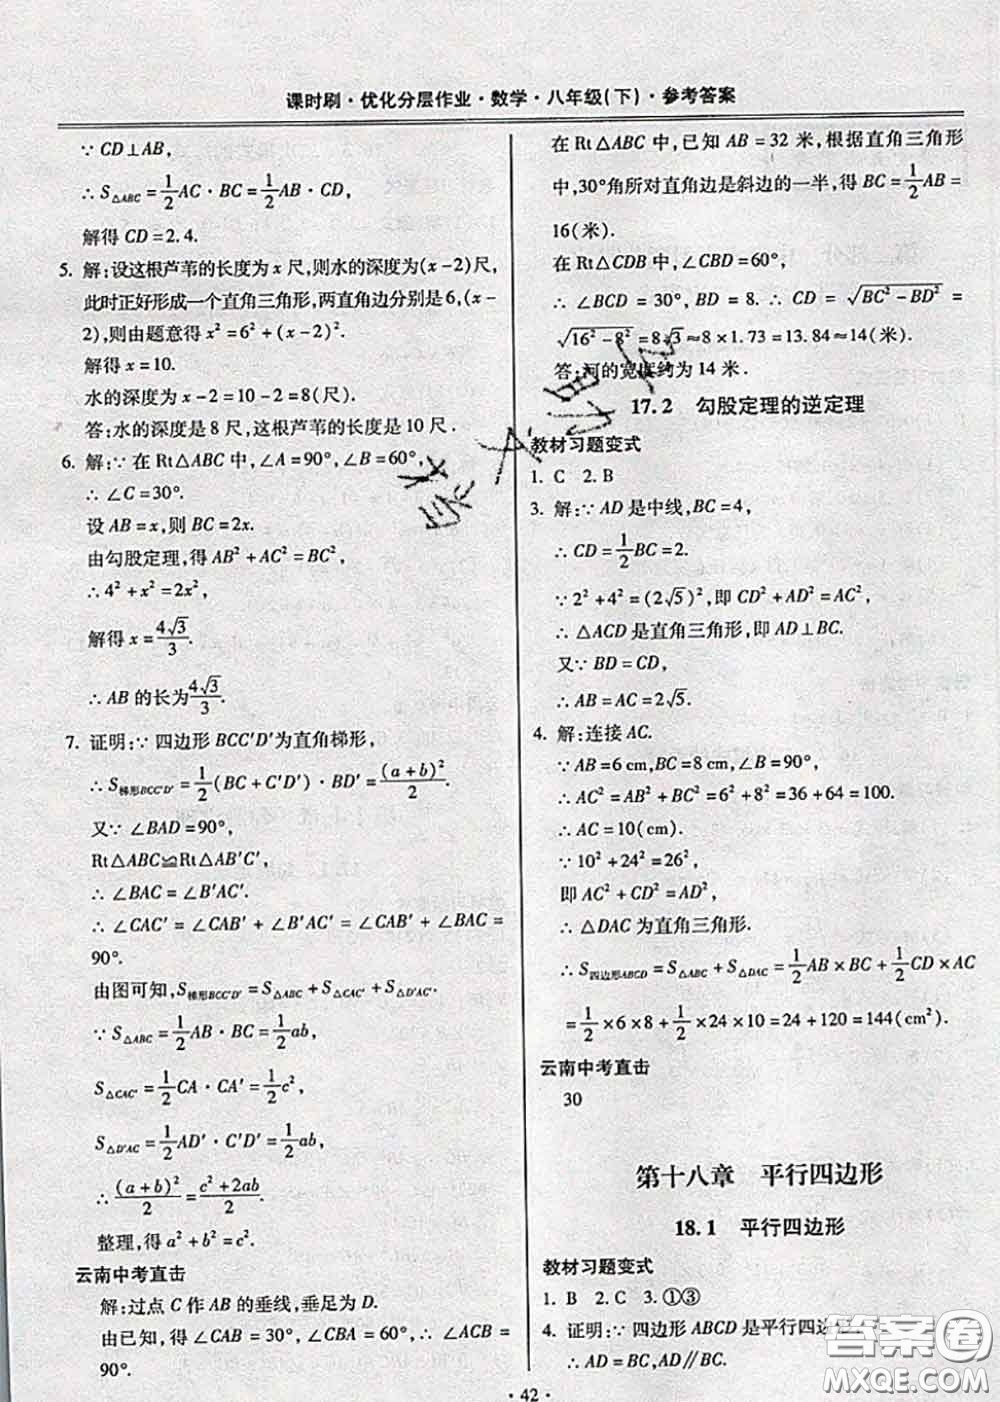 课时刷·优化分层作业·数学·八年级(下)·参考答案
∵CD⊥AB,
∴S△ABC=1/2AC·BC=1/2AB·CD,
解得 CD=2.4.
5. 解:设这根芦苇的长度为 x 尺,则水的深度为(x-2)尺,
此时正好形成一个直角三角形,两直角边分别是 6,(x-
2),则由题意得 x²=6²+(x-2)².
解得 x=10.
水的深度为 x-2=10-2=8(尺).
答:水的深度是 8 尺,这根芦苇的长度是 10 尺.
6. 解:∵在 Rt△ABC 中,∠A=90°,∠B=60°,
∴∠C=30°.
设 AB=x,则 BC=2x.
由勾股定理,得 AB²+AC²=BC²,
∴4²+x²=2x²,
解得 x=4√3/3.
∴AB 的长为4√3/3.
7. 证明:∵四边形 BCC′D′为直角梯形,
∴S梯形BCC′D′=1/2(BC+C′D′)·BD′=(a+b)²/2.
又∵∠BAD=90°,
Rt△ABC≌Rt△AB′C′,
∴∠BAC=∠B′AC′.
∴∠CAC′=∠CAB′+∠B′AC′=∠CAB′+∠BAC=
90°.
由图可知,S梯形BCC′D′=S△ABC+S△CAC′+S△D′AC′.
∵S△ABC=1/2AB·BC=1/2ab,
S△CAC′=1/2CA·CA′=1/2c²,
S△D′AC=1/2AD′·C′D′=1/2ab,
∴(a+b)²/2=c²+2ab/2.
整理,得 a²+b²=c².
云南中考直击
解:过点 C 作 AB 的垂线,垂足为 D.
由已知,得∠CAB=30°,∠CBA=60°,∴∠ACB=
90°.
在 Rt△ABC 中,已知 AB=32 米,根据直角三角形
中,30°角所对直角边是斜边的一半,得 BC=1/2AB=
16(米).
在 Rt△CDB 中,∠CBD=60°,
∴∠BCD=30°,BD=8.∴CD=√(BC²-BD²)=
√(16²-8²)=8√3≈8×1.73=13.84≈14(米).
答:河的宽度约为 14 米.
17.2 勾股定理的逆定理
教材习题变式
1. C 2. B
3. 解:∵AD 是中线,BC=4,
∴CD=1/2BC=2.
∵2²+4²=(2√5)²,即 CD²+AD²=AC²,
∴△ACD 是直角三角形,即 AD⊥BC.
又∵BD=CD,
∴AB=AC=2√5.
4. 解:连接 AC.
∵AB=6 cm,BC=8 cm,∠B=90°,
∴AC²=AB²+BC²=6²+8²=36+64=100.
∴AC=10(cm).
∵10²+24²=26²,
即 AC²+CD²=AD²,
∴△DAC 为直角三角形.
∴S四边形ABCD=S△ABC+S△DAC=1/2AB×BC+1/2CD×AC
=1/2×6×8+1/2×24×10=24+120=144(cm²).
云南中考直击
30
第十八章 平行四边形
18.1 平行四边形
教材习题变式
1. B 2. C 3. ①③
4. 证明:∵四边形 ABCD 是平行四边形
∴AD=BC,AD∥BC.
·42·
答案卷
MXQE.COM